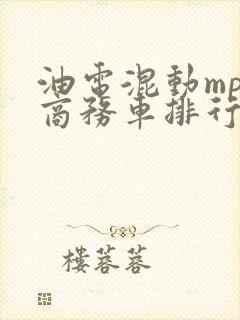 油電混動mp
商務車排行
樓蓉蓉